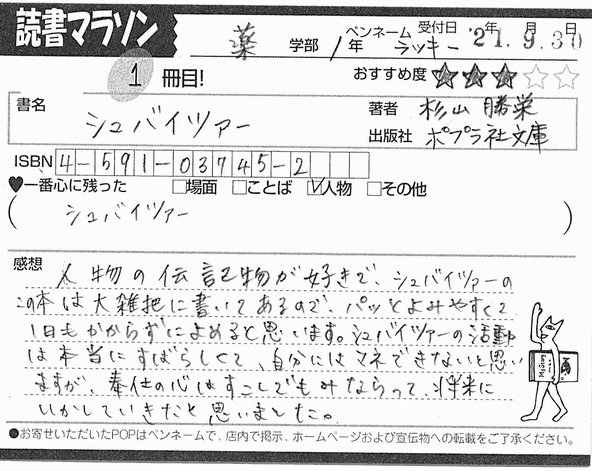 読書マラソン
薬 学部 1年 ペンネーム ラッキー 受付日 '21年9月30日
1 冊目! おすすめ度 ★★★☆☆
書名 シュバイツァー
著者 杉山勝栄
出版社 ポプラ社文庫
ISBN 4-591-03745-2
♥一番心に残った □場面 □ことば ☑人物 □その他
( シュバイツァー )
感想
人物の伝記物が好きで、シュバイツァーの
この本は大雑把に書いてあるので、パッとよみやすくて
1日もかからずによめると思います。シュバイツァーの活動
は本当にすばらしくて、自分にはマネできないと思い
ますが、奉仕の心はすこしでもみならって、将来に
いかしていきたと思いました。
●お寄せいただいたPOPはペンネームで、店内で掲示、ホームページおよび宣伝物への転載をご了承ください。